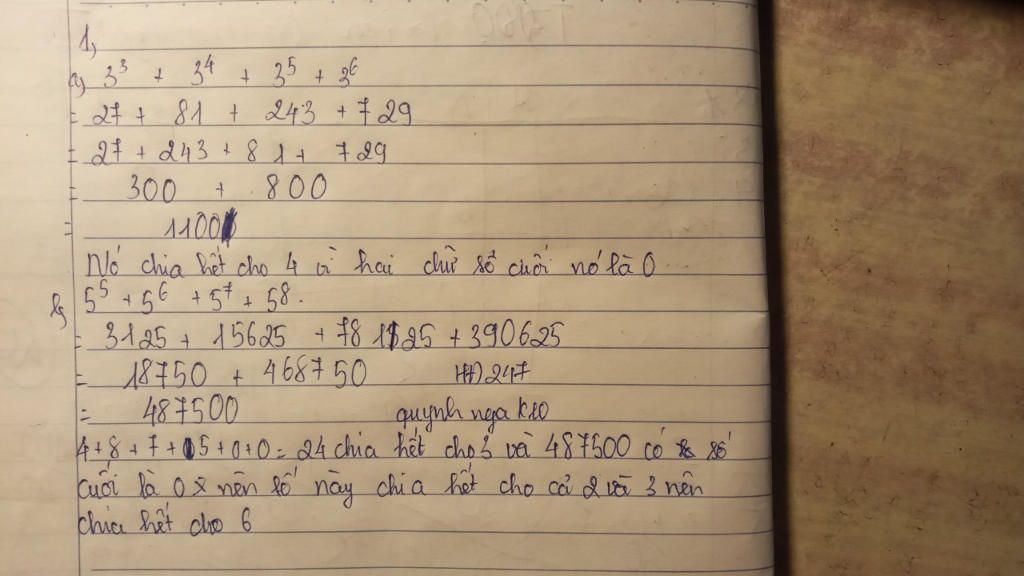 1,
a) 3³ + 3⁴ + 3⁵ + 3⁶
= 27 + 81 + 243 + 729
= 27 + 243 + 81 + 729
= 300 + 800
= 1100
Nó chia hết cho 4 vì hai chữ số cuối nó là 0
b) 5⁵ + 5⁶ + 5⁷ + 5⁸.
= 3125 + 15625 + 78125 + 390625
= 18750 + 468750 HĐ247
= 487500 quynh nga K10
4+8+7+5+0+0= 24 chia hết cho 3 và 487500 có số
cuối là 0 nên số này chia hết cho cả 2 và 3 nên
chia hết cho 6